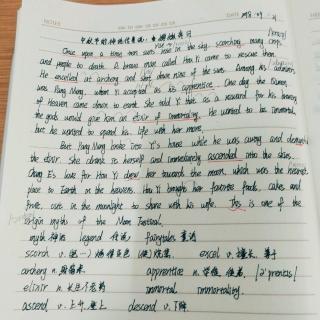 DATE
Once upon a time ten suns rose in the sky, scorching many crops
and people to death. A brave man called Hou Yi came to rescue them.
He excelled at archery and shot down nine of the suns. Among his admirers
was Pang Meng, whom Yi accepted as his apprentice. One day, the Queen
of Heaven came down to earth. She told Yi that as a reward for his bravery
the gods would give him an elixir of immortality. He wanted to be immortal,
but he wanted to spend his life with her more.
But Pang Meng broke into Yi's house while he was away and demanded
the elixir. She drank it herself and immediately ascended into the skies.
Chang E's love for Hou Yi drew her towards the moon, which was the nearest
place to Earth in the heavens. Hou Yi brought her favorite foods, cakes and
fruit, out in the moonlight to share with his wife. This is one of the
origin myths of the Moon Festival.
myth 神话 legend 传说 fairytales 童话
scorch v. excel v. 擅长
archery n. apprentice n. 学徒
elixir n. 长生不老药 immortal immortality
ascend v. 上升 descend v. 下降